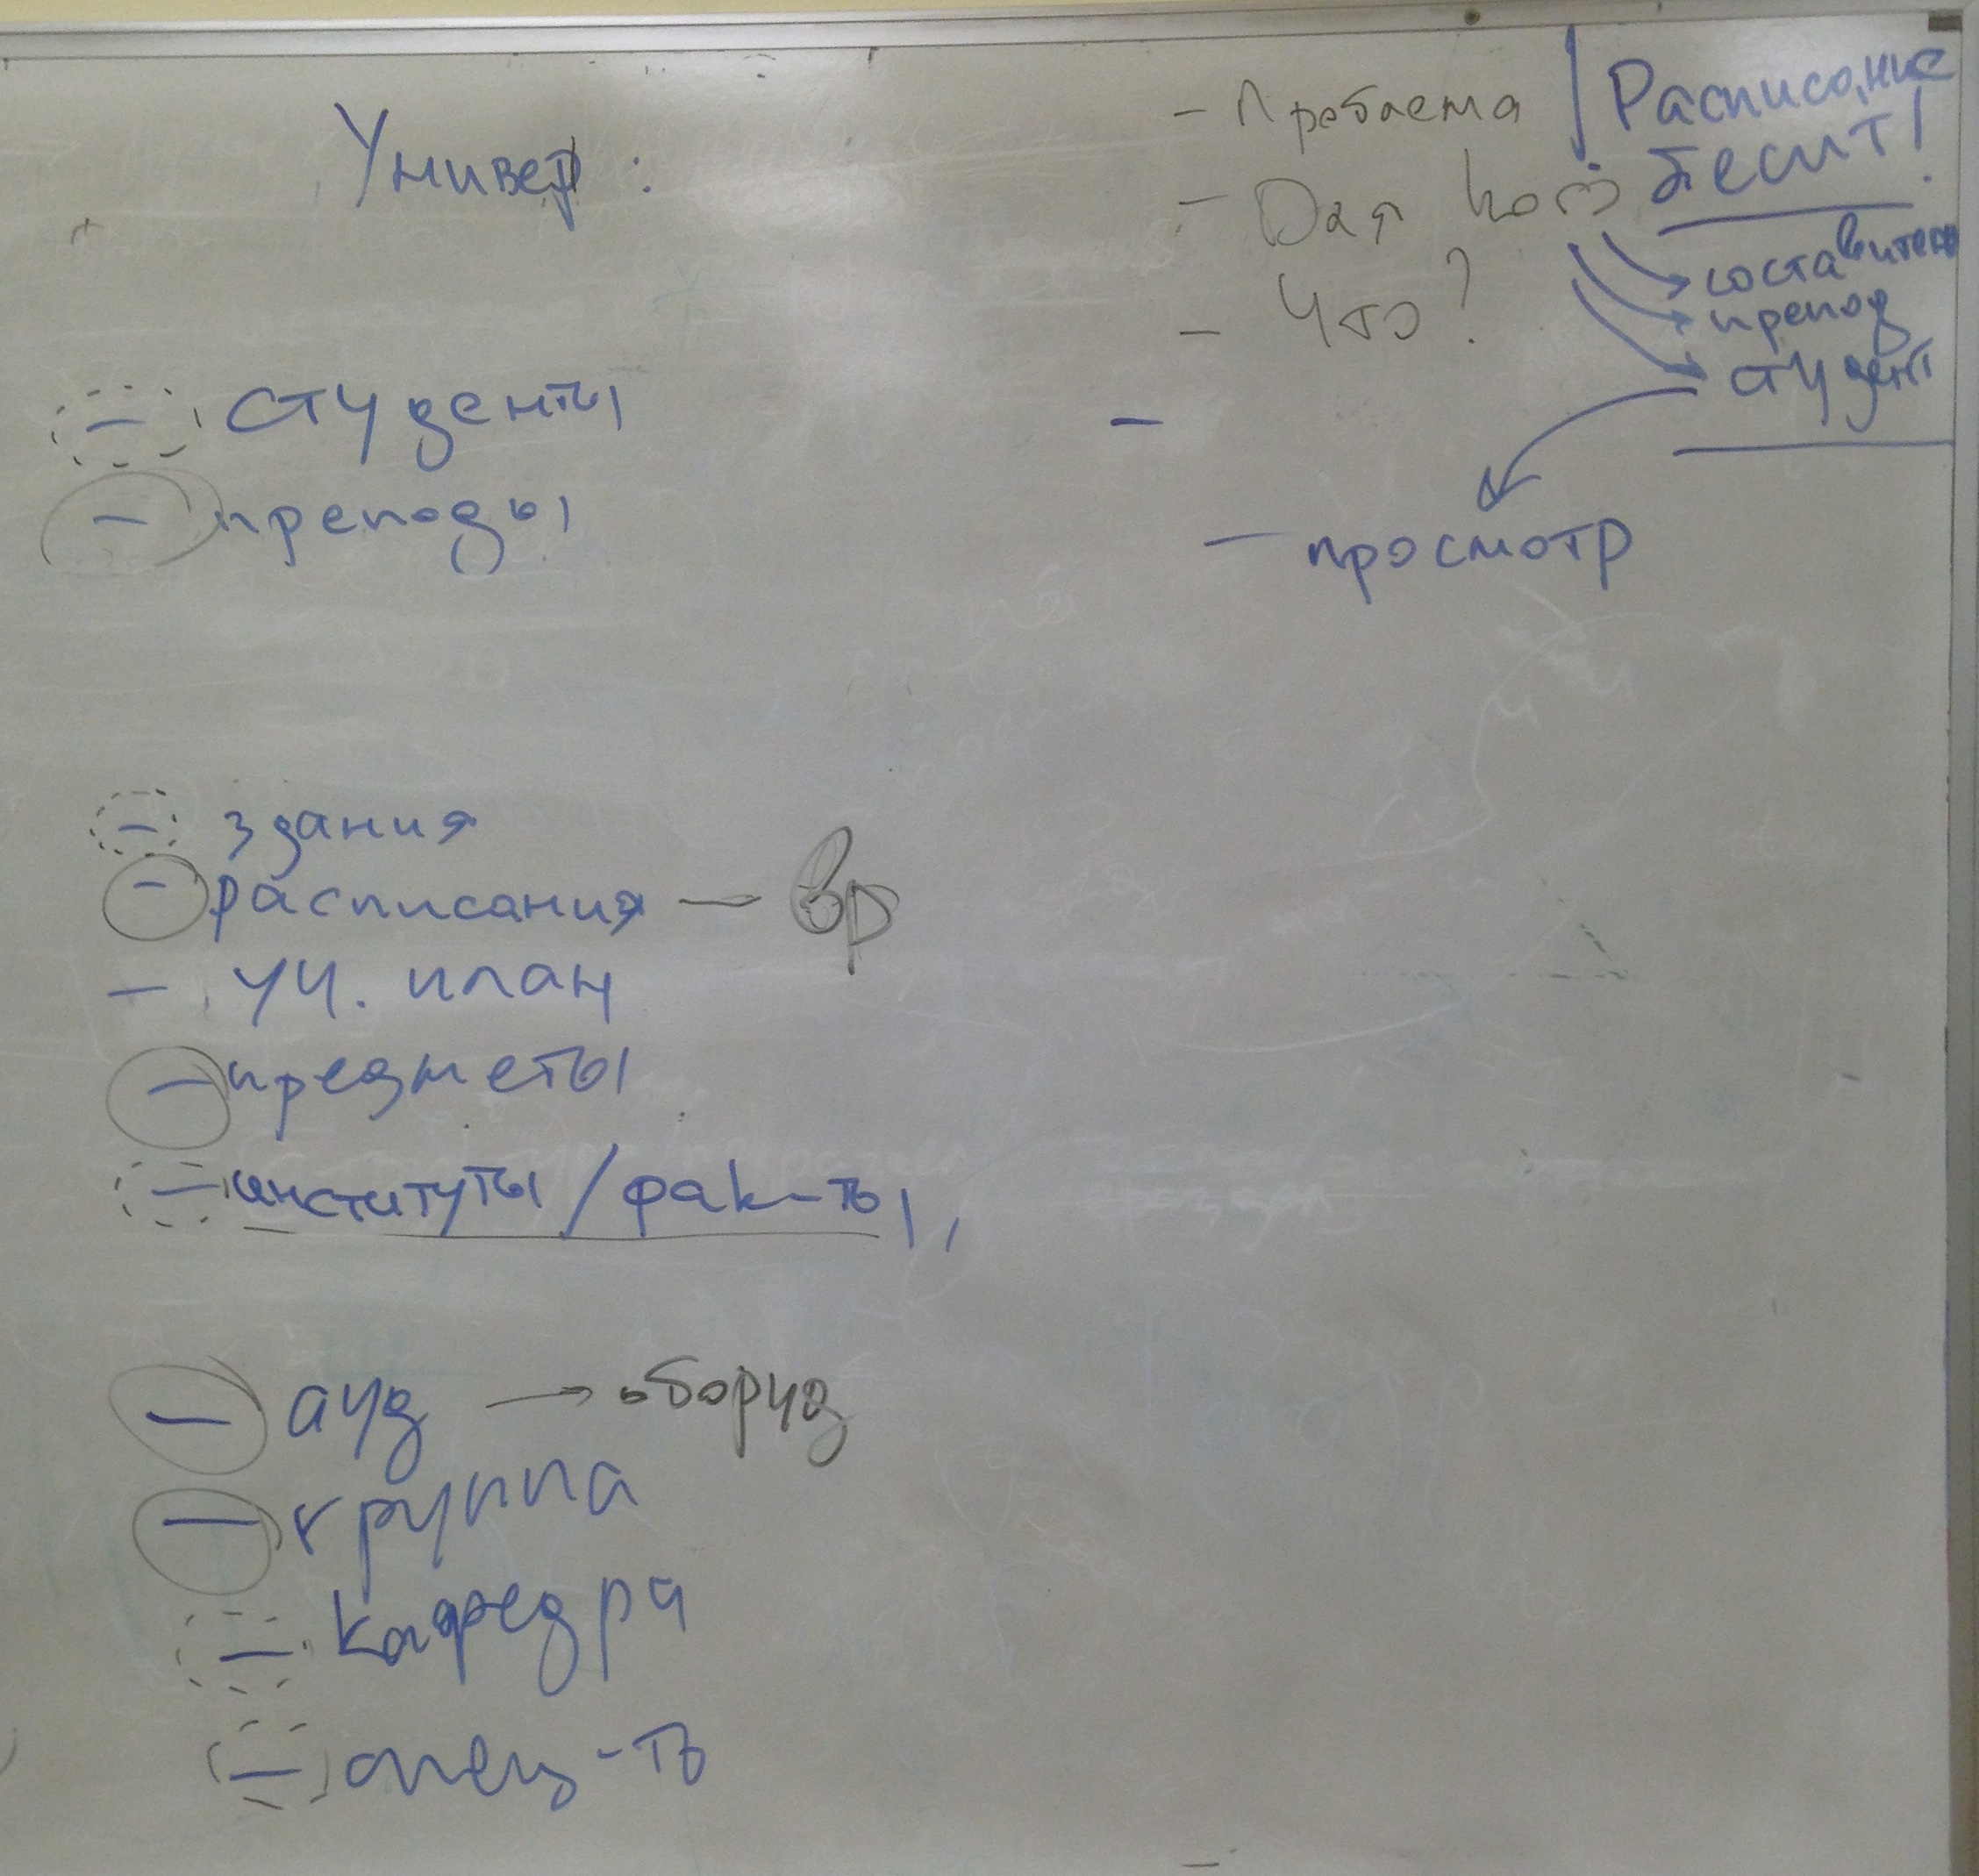 Универ:
- студенты
- преподы
- здания
- расписания — вр
- уч. план
- предметы
- институты / фак-ты,
- ауд → оборуд
- группа
- кафедра
- спец-ть
- Проблема
- Для кого
- Что?
Расписание
бесит!
составитель
препод
студент
- просмотр